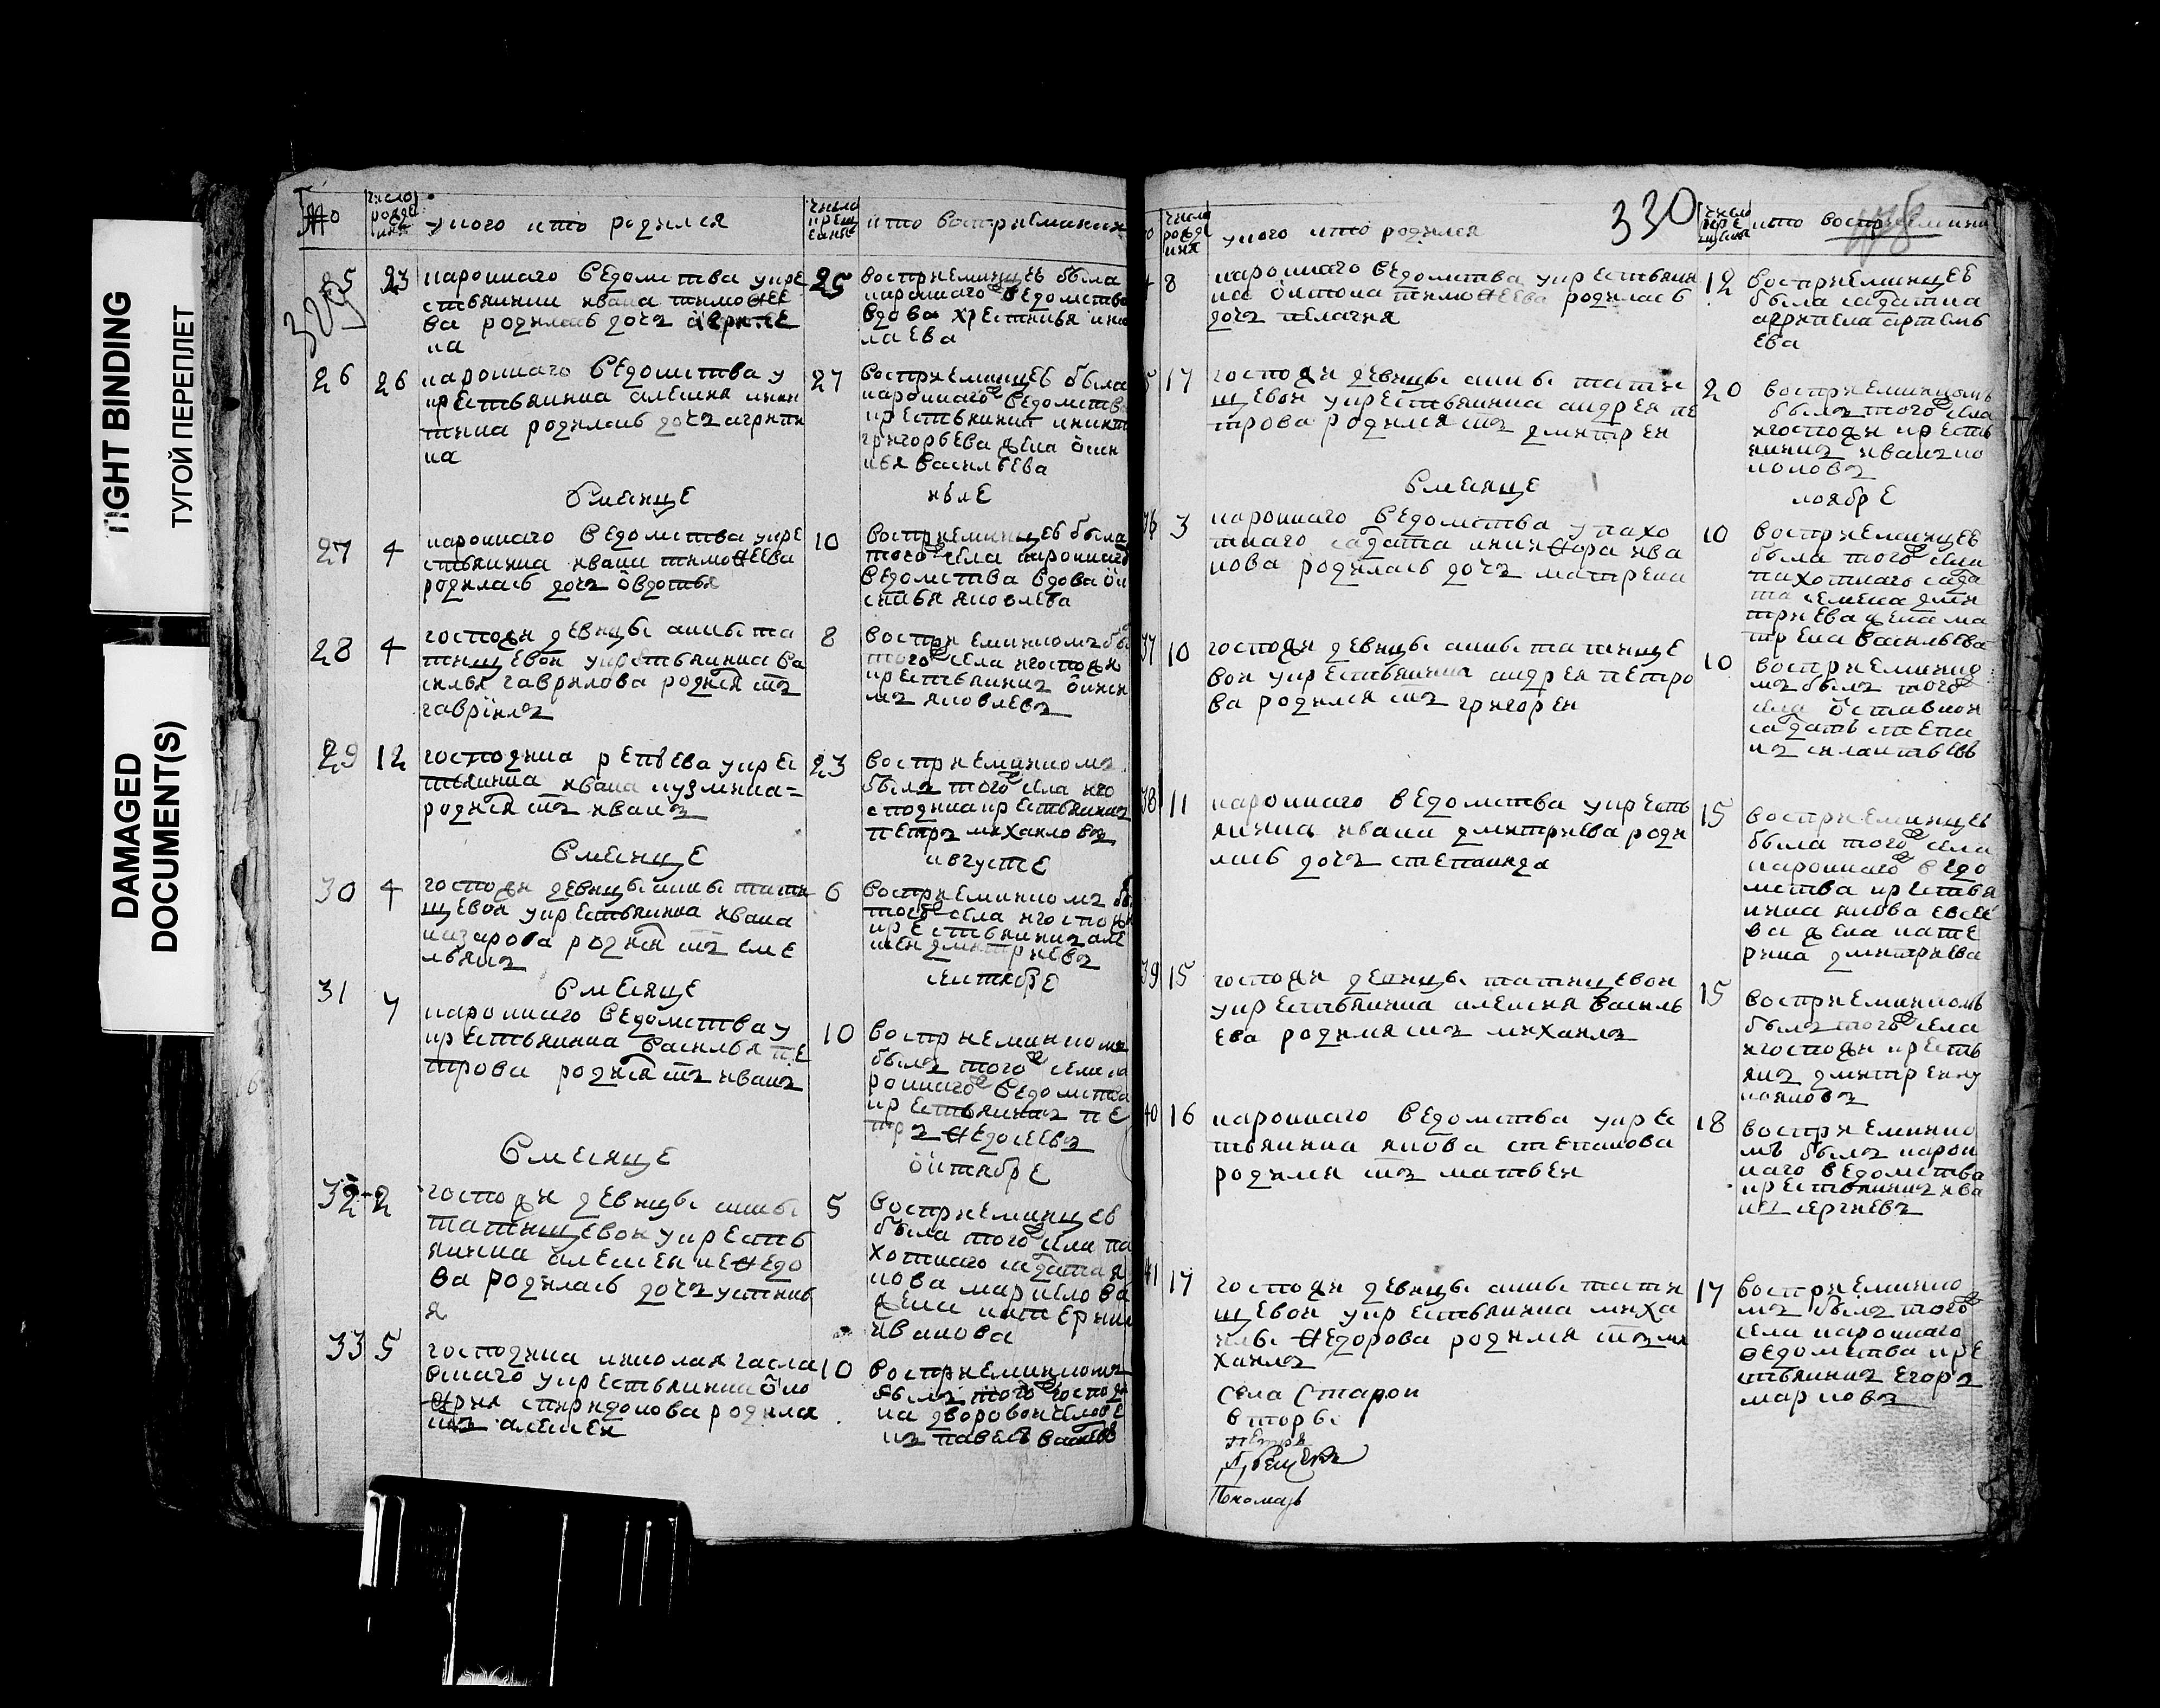 TIGHT BINDING
ТУГОЙ ПЕРЕПЛЕТ
DAMAGED
DOCUMENT(S)
№
число
рожде
ния
у кого кто родился
число
креще
ния
кто восприемники
329
25
23
коронного ведомства у кре
стьянина ивана тимофее
ва родилась дочь агрипе
на
25
восприемницеь была
коронного ж ведомства
вдова хрестинья нико
лаева
26
26
коронного ведомства у
крестьянина алексея
родилась дочь агрипи
на
27
восприемницеь была
коронного ж ведомства
крестьянина никит
григорьева жена
васильева
в месяце
июле
27
4
коронного ведомства у кре
стьянина ивана тимофеева
родилась дочь овдотья
10
восприемницеь была
того ж села коронного
ведомства вдова
яковлева
28
4
госпожи девицы анны та
тищевой у крестьянина ва
силья гаврилова родился сынъ
гаврiилъ
8
восприемникомъ бы
того ж села и госпожи
крестьянинъ
яковлевъ
29
12
господина репьева у кре
стьянина ивана кузмина
родился сынъ иванъ
23
восприемникомъ
былъ того ж села и го
сподина крестьянинъ
петръ михаиловъ
в месяце
августе
30
4
госпожи девицы анны тати
щевой у крестьянина ивана
назарова родился сынъ еме
льянъ
6
восприемникомъ бы
того ж села и госпожи
крестьянинъ але
ксей дмитриевъ
в месяце
сентябре
31
7
коронного ведомства у
крестьянина василья пе
трова родился сынъ иванъ
10
восприемникомъ
былъ того ж села ко
ронного ж ведомства
крестьянинъ пе
тръ федосеевъ
в месяце
октябре
32
2
госпожи девицы анны
татищевой у кресть
янина алексея нефедо
ва родилась дочь устинь
я
5
восприемницеь
была того ж села па
хотного салдата я
кова маркелова
жена катерина
иванова
33
5
господина николая
у крестьянина оно
фрия спиридонова родился
сынъ алексей
10
восприемникомъ
былъ того ж господи
на дворовой челове
къ павелъ
число
рожде
ния
у кого кто родился
330
число
креще
ния
кто восприемники
8
коронного ведомства у крестьяни
на антона тимофеева родилась
дочь пелагия
12
восприемницеь
была салдатка
агрипена артемь
ева
17
госпожи девицы анны тати
щевой у крестьянина андрея пе
трова родился сынъ дмитрей
20
восприемникомъ
былъ того ж села
и госпожи кресть
янинъ иванъ
в месяце
ноябре
36
3
коронного ведомства у пахо
тного салдата никифора ива
нова родилась дочь матрена
10
восприемницеь
была того ж села
пахотного салда
та семена дми
триева жена ма
трена васильева
37
10
госпожи девицы анны татище
вой у крестьянина андрея петро
ва родился сынъ григорей
10
восприемнико
мъ былъ того ж
села отставной
салдатъ степа
нъ
38
11
коронного ведомства у кресть
янина ивана дмитриева роди
лась дочь степанида
15
восприемницеь
была того ж села
коронного ж ведо
мства крестья
нина якова евсее
ва жена кате
рина дмитриева
39
15
госпожи девицы татищевой
у крестьянина алексея василь
ева родился сынъ михаилъ
15
восприемникомъ
былъ того ж села
и госпожи кресть
янъ дмитрей
40
16
коронного ведомства у кре
стьянина якова степанова
родился сынъ матвей
18
восприемнико
мъ былъ корон
ного ведомства
крестьянинъ ива
нъ сергиевъ
41
17
госпожи девицы анны тати
щевой у крестьянина миха
илы федорова родился сынъ ми
хаилъ
17
восприемнико
мъ былъ того ж
села коронного
ведомства кре
стьянинъ егоръ
марковъ
села старой
Пономарь